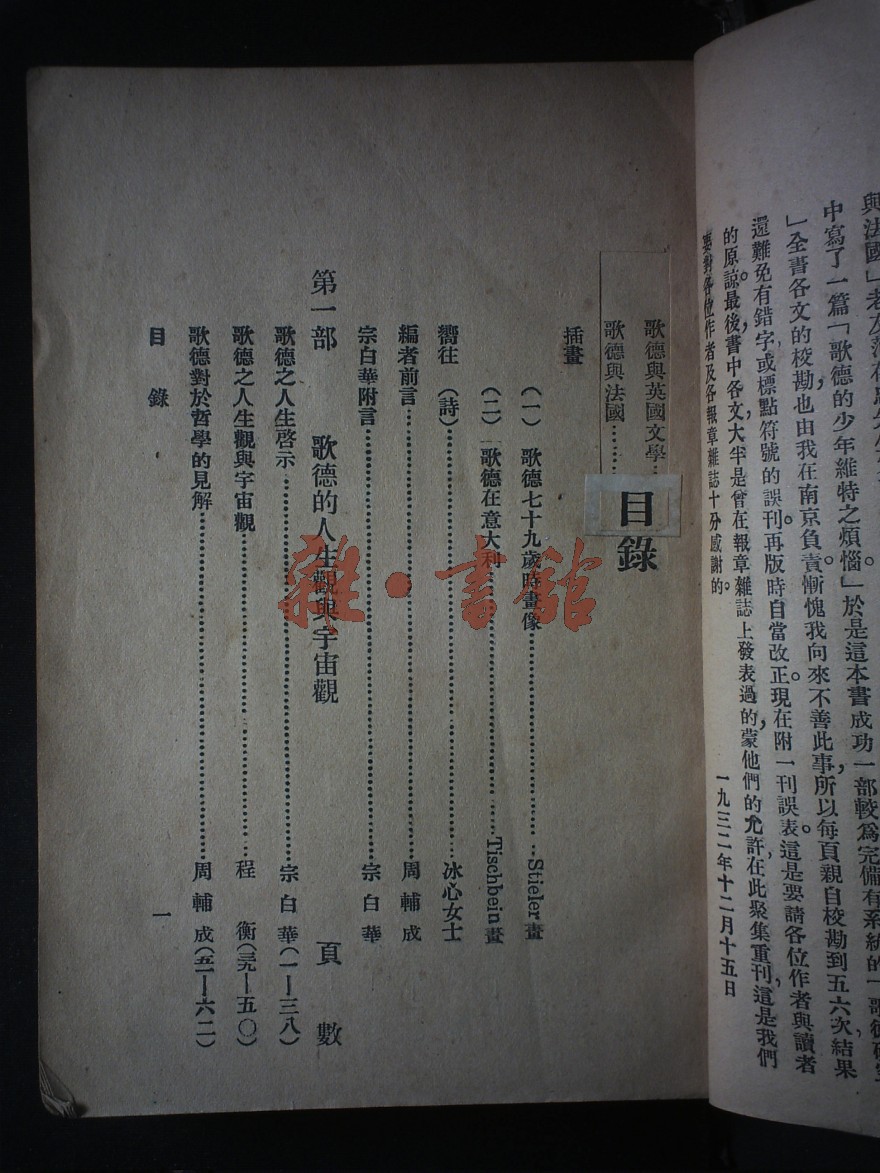 與法國」老友
中寫了一篇「歌德的少年維特之煩惱」於是這本書成功一部較爲完備有系統的「歌德
」全書各文的校勘也由我在南京負責慚愧我向來不善此事所以每頁親自校勘到五六次，結果
還難免有錯字或標點符號的誤刊再版時自當改正。現在附一刊誤表。這是要請各位作者與讀者
的原諒。最後，書中各文大半是曾在報章雜誌上發表過的，蒙他們的允許在此聚集重刊，這是我們
要對各位作者及各報章雜誌十分感謝的。
一九三二年十二月十五日
歌德與英國文學
歌德與法國
目錄
插畫
（一）　歌德七十九歲時畫像 Stieler 畫
（二）　歌德在意大利 Tischbein 畫
嚮往　（詩） 冰心女士
編者前言 周輔成
宗白華附言 宗白華
第一部　歌德的人生觀與宇宙觀　頁數
歌德之人生啓示 宗白華（一—三八）
歌德之人生觀與宇宙觀 程衡（三九—五〇）
歌德對於哲學的見解 周輔成（五一—六二）
目錄　一
雜·書館